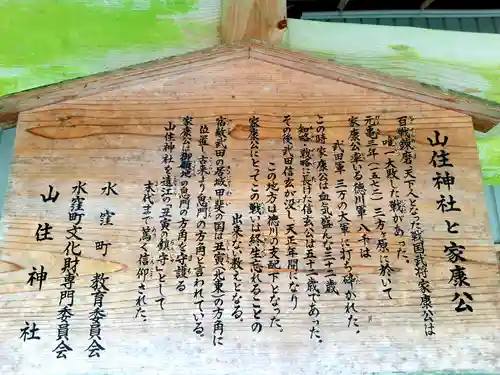 山住神社と家康公
百戦錬磨、天下人となった戦国武将家康公は
唯一大敗した戦があった。
元亀三年(一五七二)三方ヶ原に於いて
家康公率いる徳川軍八千は
武田軍三万の大軍に打ち砕かれた。
この時家康公は血気盛んな三十二歳
知略・戦略に長けた信玄公は五十二歳であった。
その後武田信玄が没し天正年間になり
この地方は徳川の支配下となった。
家康公にとってこの戦いは終生忘れることの
出来ない教えとなる。
宿敵武田の居城甲斐の国は丑寅(北東)の方角に
位置し古来より鬼門の方角と言われている。
家康公は御領地の鬼門の方角を守護る
山住神社を遠江の丑寅の鎮守として
末代まで篤く信仰された。
水窪町 教育委員会
水窪町文化財専門委員会
山住神社